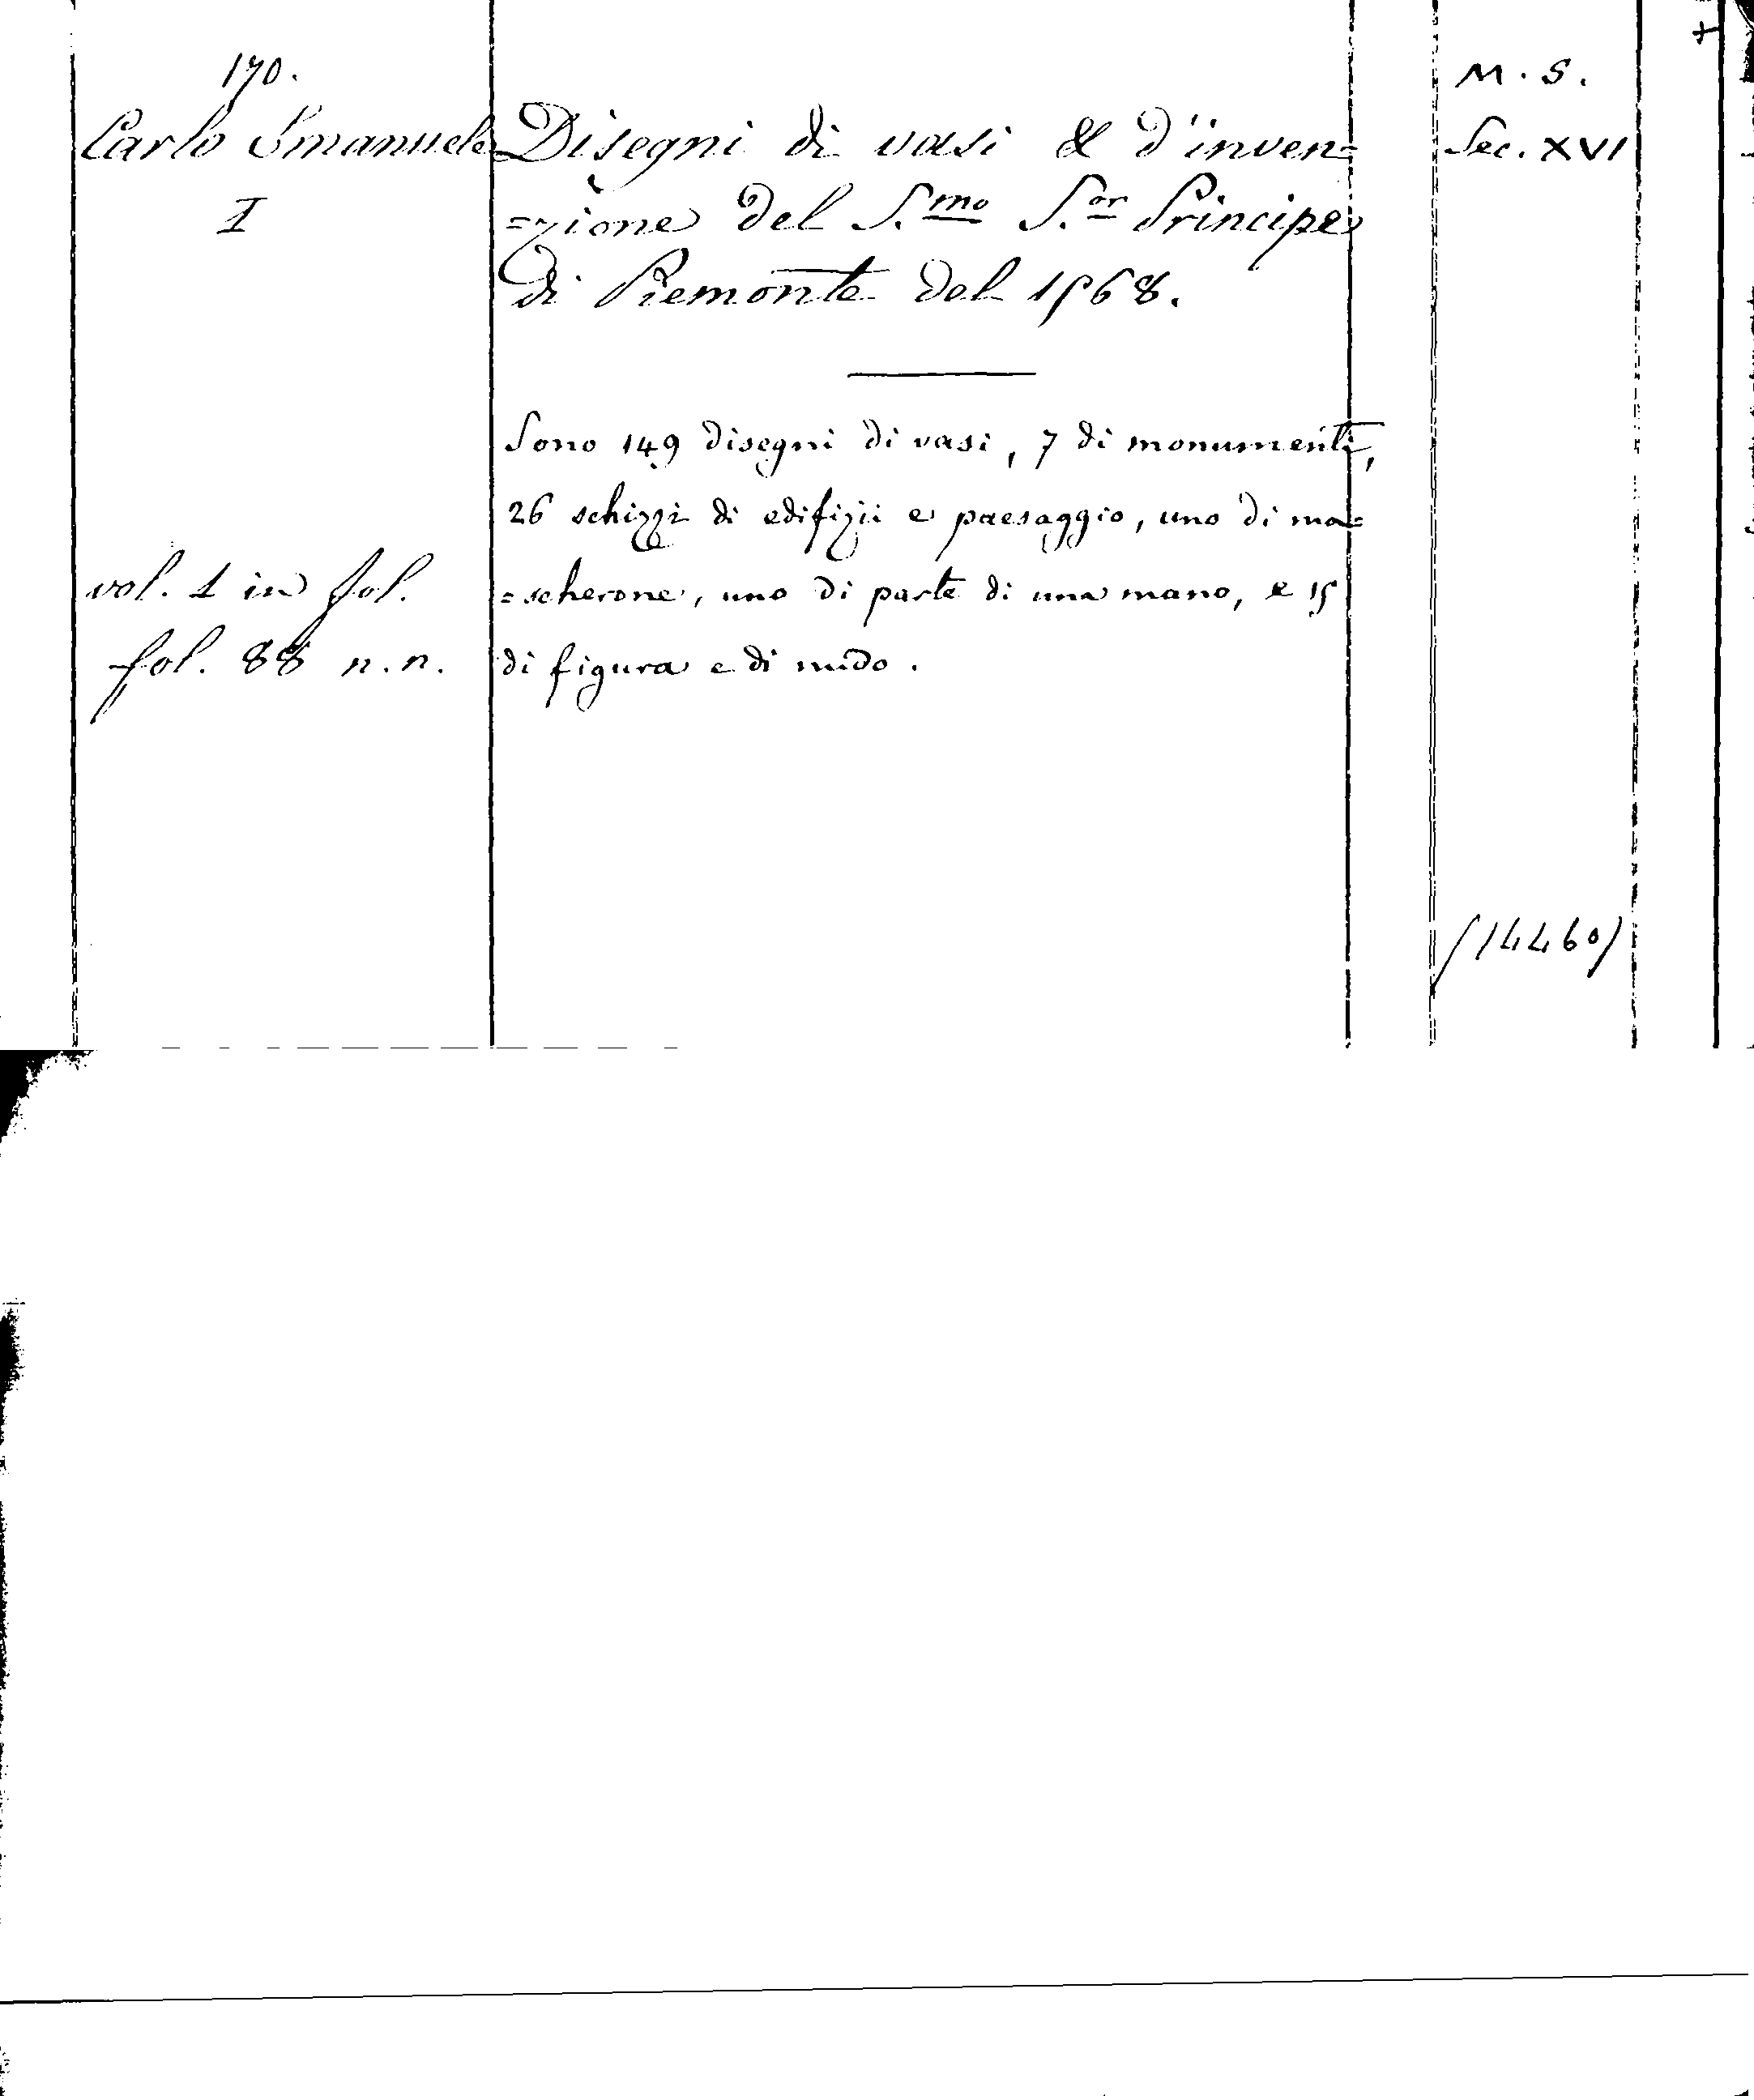 170.
Carlo Emanuele
I
vol. 1 in fol.
fol. 88 n.n.
Disegni di vasi & d'inven=
=zione del S.mo S.or Principe
di Piemonte del 1568.
Sono 149 disegni di vasi, 7 di monumenti,
26 schizzi di edifizii e paesaggio, uno di ma=
=scherone, uno di parte di una mano, e 15
di figura e di nudo.
M.S.
Sec. XVI
(14460)